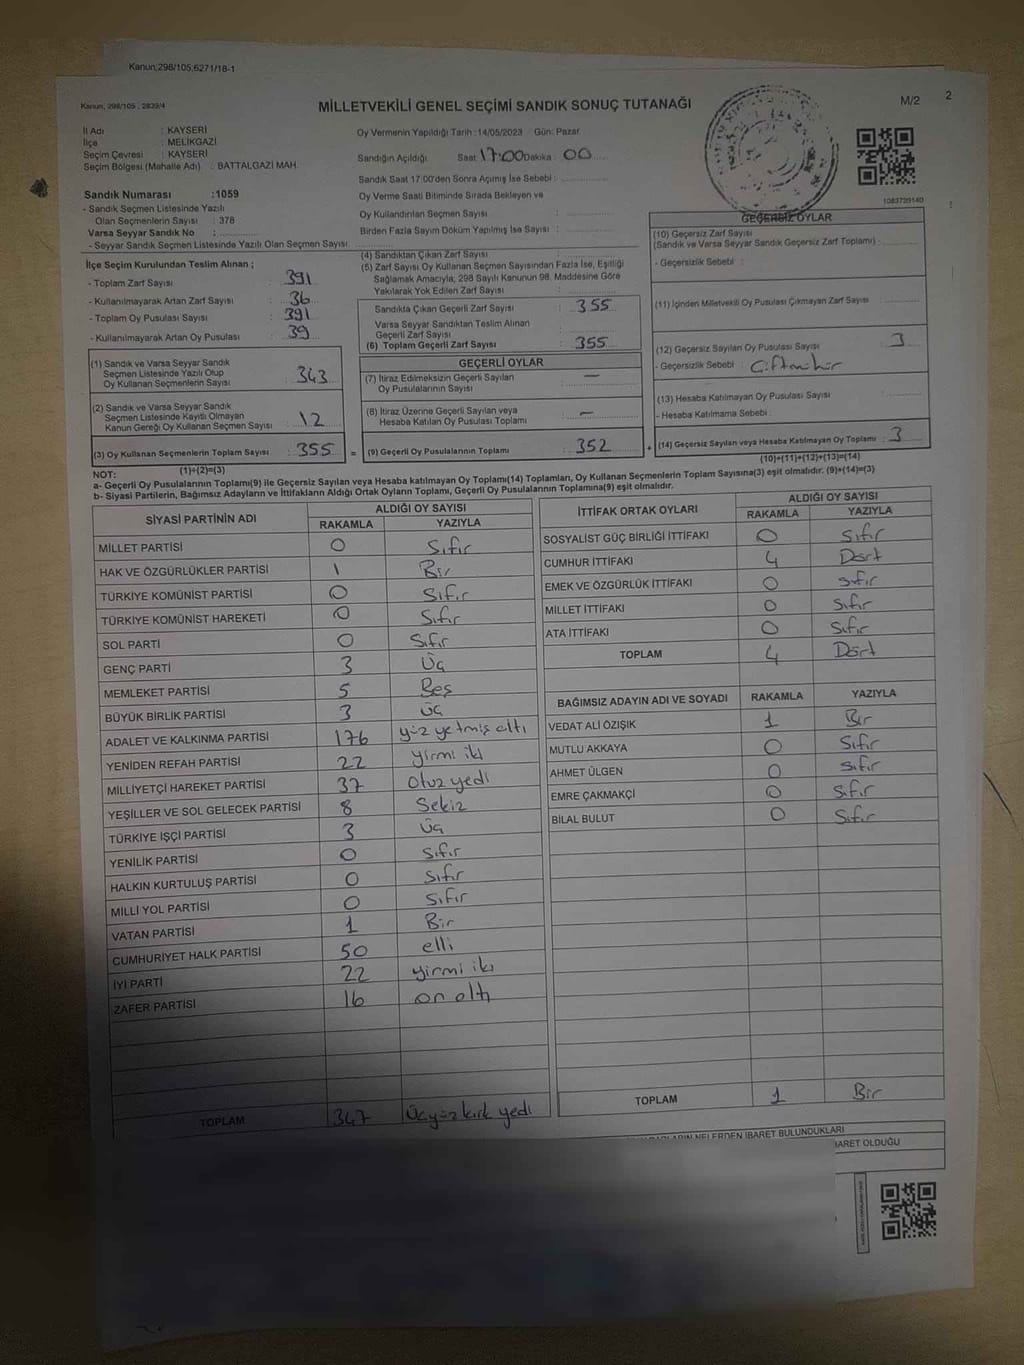 Kanun,298/105,6271/18-1
Kanun, 298/105 , 2839/4
MİLLETVEKİLİ GENEL SEÇİMİ SANDIK SONUÇ TUTANAĞI
M/2
2
İl Adı : KAYSERİ
İlçe : MELİKGAZİ
Seçim Çevresi : KAYSERİ
Seçim Bölgesi (Mahalle Adı) : BATTALGAZİ MAH.
Sandık Numarası :1059
- Sandık Seçmen Listesinde Yazılı
Olan Seçmenlerin Sayısı : 378
Varsa Seyyar Sandık No :
- Seyyar Sandık Seçmen Listesinde Yazılı Olan Seçmen Sayısı:
Oy Vermenin Yapıldığı Tarih :14/05/2023 Gün: Pazar
Sandığın Açıldığı Saat 17:00 Dakika : 00
Sandık Saat 17:00'den Sonra Açımış İse Sebebi :
Oy Verme Saati Bitiminde Sırada Bekleyen ve
Oy Kullandırılan Seçmen Sayısı :
Birden Fazla Sayım Döküm Yapılmış İse Sayısı :
1083739140
İlçe Seçim Kurulundan Teslim Alınan ;
- Toplam Zarf Sayısı : 391
- Kullanılmayarak Artan Zarf Sayısı : 36
- Toplam Oy Pusulası Sayısı : 391
- Kullanılmayarak Artan Oy Pusulası : 39
(1) Sandık ve Varsa Seyyar Sandık
Seçmen Listesinde Yazılı Olup
Oy Kullanan Seçmenlerin Sayısı : 343
(2) Sandık ve Varsa Seyyar Sandık
Seçmen Listesinde Kayıtlı Olmayan
Kanun Gereği Oy Kullanan Seçmen Sayısı : 12
(3) Oy Kullanan Seçmenlerin Toplam Sayısı : 355
(4) Sandıktan Çıkan Zarf Sayısı :
(5) Zarf Sayısı Oy Kullanan Seçmen Sayısından Fazla İse, Eşitliği
Sağlamak Amacıyla, 298 Sayılı Kanunun 98. Maddesine Göre
Yakılarak Yok Edilen Zarf Sayısı :
Sandıkta Çıkan Geçerli Zarf Sayısı : 355
Varsa Seyyar Sandıktan Teslim Alınan
Geçerli Zarf Sayısı :
(6) Toplam Geçerli Zarf Sayısı : 355
GEÇERLİ OYLAR
(7) İtiraz Edilmeksizin Geçerli Sayılan
Oy Pusulalarının Sayısı : —
(8) İtiraz Üzerine Geçerli Sayılan veya
Hesaba Katılan Oy Pusulaları Toplamı : —
= (9) Geçerli Oy Pusulalarının Toplamı : 352
GEÇERSİZ OYLAR
(10) Geçersiz Zarf Sayısı
(Sandık ve Varsa Seyyar Sandık Geçersiz Zarf Toplamı) :
- Geçersizlik Sebebi :
(11) İçinden Milletvekili Oy Pusulası Çıkmayan Zarf Sayısı :
(12) Geçersiz Sayılan Oy Pusulası Sayısı : 3
- Geçersizlik Sebebi : Çift mühür
(13) Hesaba Katılmayan Oy Pusulası Sayısı :
- Hesaba Katılmama Sebebi :
+ (14) Geçersiz Sayılan veya Hesaba Katılmayan Oy Toplamı : 3
NOT: (1)+(2)=(3) (10)+(11)+(12)+(13)=(14)
a- Geçerli Oy Pusulalarının Toplamı(9) ile Geçersiz Sayılan veya Hesaba katılmayan Oy Toplamı(14) Toplamları, Oy Kullanan Seçmenlerin Toplam Sayısına(3) eşit olmalıdır. (9)+(14)=(3)
b- Siyasi Partilerin, Bağımsız Adayların ve İttifakların Aldığı Ortak Oyların Toplamı, Geçerli Oy Pusulalarının Toplamına(9) eşit olmalıdır.
SİYASİ PARTİNİN ADI ALDIĞI OY SAYISI
RAKAMLA YAZIYLA
MİLLET PARTİSİ 0 Sıfır
HAK VE ÖZGÜRLÜKLER PARTİSİ 1 Bir
TÜRKİYE KOMÜNİST PARTİSİ 0 Sıfır
TÜRKİYE KOMÜNİST HAREKETİ 0 Sıfır
SOL PARTİ 0 Sıfır
GENÇ PARTİ 3 Üç
MEMLEKET PARTİSİ 5 Beş
BÜYÜK BİRLİK PARTİSİ 3 üç
ADALET VE KALKINMA PARTİSİ 176 yüz yetmiş altı
YENİDEN REFAH PARTİSİ 22 yirmi iki
MİLLİYETÇİ HAREKET PARTİSİ 37 Otuz yedi
YEŞİLLER VE SOL GELECEK PARTİSİ 8 Sekiz
TÜRKİYE İŞÇİ PARTİSİ 3 Üç
YENİLİK PARTİSİ 0 Sıfır
HALKIN KURTULUŞ PARTİSİ 0 Sıfır
MİLLİ YOL PARTİSİ 0 Sıfır
VATAN PARTİSİ 1 Bir
CUMHURİYET HALK PARTİSİ 50 elli
İYİ PARTİ 22 yirmi iki
ZAFER PARTİSİ 16 on altı
TOPLAM 347 Üçyüz kırk yedi
İTTİFAK ORTAK OYLARI ALDIĞI OY SAYISI
RAKAMLA YAZIYLA
SOSYALİST GÜÇ BİRLİĞİ İTTİFAKI 0 Sıfır
CUMHUR İTTİFAKI 4 Dört
EMEK VE ÖZGÜRLÜK İTTİFAKI 0 sıfır
MİLLET İTTİFAKI 0 Sıfır
ATA İTTİFAKI 0 Sıfır
TOPLAM 4 Dört
BAĞIMSIZ ADAYIN ADI VE SOYADI RAKAMLA YAZIYLA
VEDAT ALİ ÖZIŞIK 1 Bir
MUTLU AKKAYA 0 Sıfır
AHMET ÜLGEN 0 Sıfır
EMRE ÇAKMAKÇİ 0 Sıfır
BİLAL BULUT 0 Sıfır
TOPLAM 1 Bir
NELERDEN İBARET BULUNDUKLARI
İBARET OLDUĞU